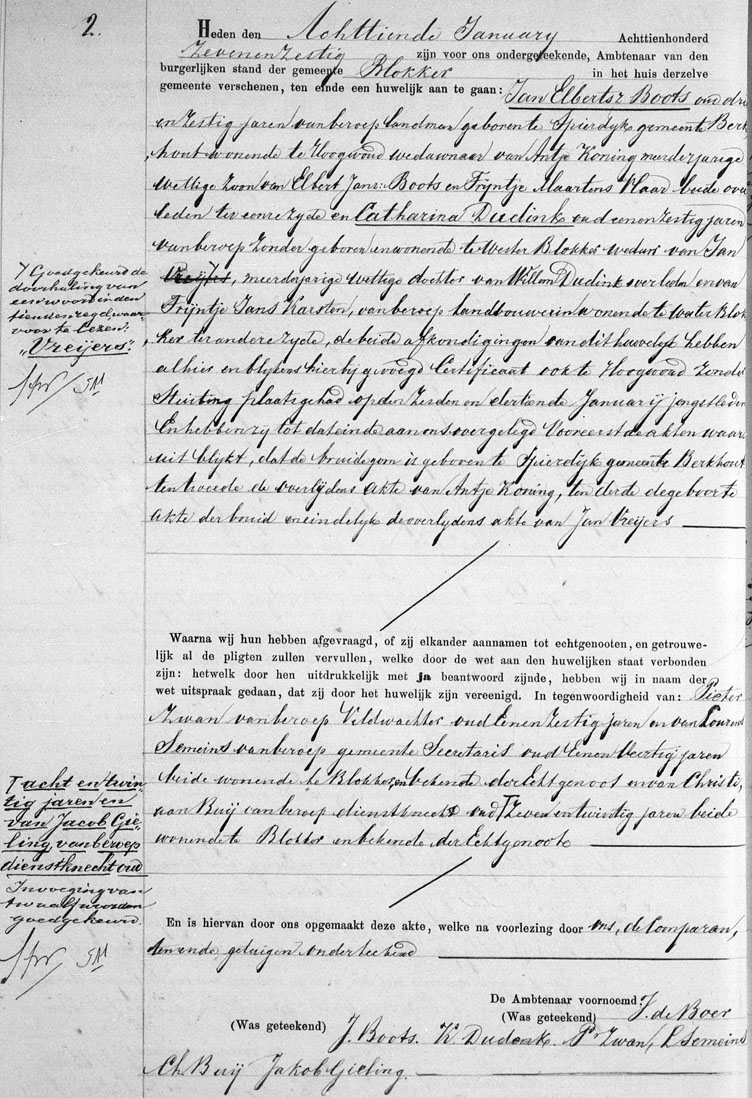 2.
Heden den Achttiende January Achttienhonderd
Zevenenzestig zijn voor ons ondergeteekende, Ambtenaar van den
burgerlijken stand der gemeente Blokker in het huis derzelve
gemeente verschenen, ten einde een huwelijk aan te gaan: Jan Elbertsz Boots oud drie
en zestig jaren van beroep landman geboren te Spierdyk gemeente Berk,
hout wonende te Hoogwoud weduwnaar van Antje Koning meerderjarige
wettige zoon van Elbert Jansz Boots en Trijntje Maartens Vlaar beide over
leden ter eenre zyde en Catharina Dudink oud eenenzestig jaren
van beroep zonder geboren en wonende te Wester Blokker weduwe van Jan
Vreijes, meerderjarige wettige dochter van Willem Dudink overleden en van
Trijntje Jans Karsten, van beroep landbouwerin wonende te Wester Blok
ker ter andere zyde, de beide afkondigingen van dit huwelijk hebben
alhier en blykens hierbij gevoegd Certificaat ook te Hoogwoud zonder
Stuiting plaats gehad op den zesden en dertiende Januarij jongstleden
En hebben zij tot dat einde aan ons overgelegd Vooreerst de akten waar
uit blykt, dat de bruidegom is geboren te Spierdijk gemeente Berkhout
ten tweede de overlijdens akte van Antje Koning, ten derde de geboorte
akte der bruid en eindelyk de overlydens akte van Jan Vreijers
7 Goedgekeurd de
doorhaling van
een woord in den
tienden regel, waar
voor te lezen:
"Vreijers".
Waarna wij hun hebben afgevraagd, of zij elkander aannamen tot echtgenooten, en getrouwe-
lijk al de pligten zullen vervullen, welke door de wet aan den huwelijken staat verbonden
zijn: hetwelk door hen uitdrukkelijk met ja beantwoord zijnde, hebben wij in naam der
wet uitspraak gedaan, dat zij door het huwelijk zijn vereenigd. In tegenwoordigheid van: Pieter
Zwan van beroep Veldwachter oud Eenenzestig jaren en van Lourens
Semeins van beroep gemeente Secretaris oud Eenen Veertig jaren
beide wonende te Blokker, en bekende der Echtgenoot en van Christi,
aan Buij van beroep dienstknecht oud T Zeven en twintig jaren beide
wonende te Blokker en bekende der Echtgenoote
T acht en twin
tig jaren en
van Jacob Gie
ling van beroep
dienstknecht oud
Invoeging van
twaalf woorden
goedgekeurd.
En is hiervan door ons opgemaakt deze akte, welke na voorlezing door ons, de Comparan,
ten en de getuigen onderteekend
De Ambtenaar voornoemd
(Was geteekend) J. de Boer
(Was geteekend) J. Boots. K Dudenk. Pr Zwan, L Semeins
Ch Berij Jakob Gieling.